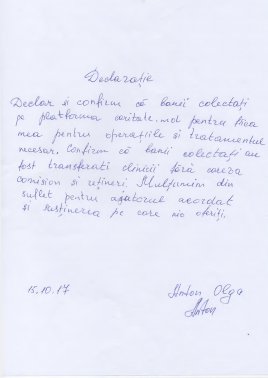 Declarație
Declar și confirm că banii colectați
pe platforma caritate.md pentru fiica
mea pentru operațiile și tratamentul
necesar. Confirm că banii colectați au
fost transferati clinicii fără careva
comision și rețineri. Mulțumim din
suflet pentru ajutorul acordat
și susținerea pe care ne oferiți.
15.10.17 Anton Olga
Anton